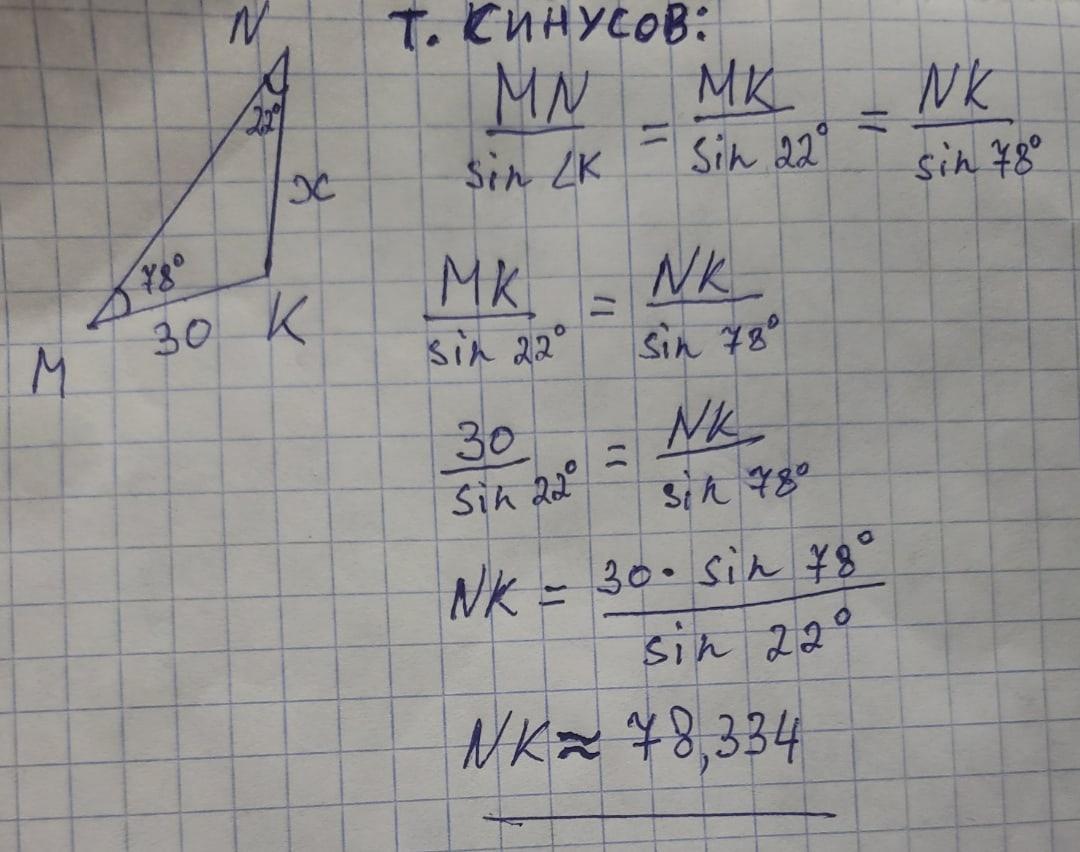 Т. КИНУСОВ:
N
22°
x
78°
30
K
M
MN / sin ∠K = MK / sin 22° = NK / sin 78°
MK / sin 22° = NK / sin 78°
30 / sin 22° = NK / sin 78°
NK = 30 · sin 78° / sin 22°
NK ≈ 78,334